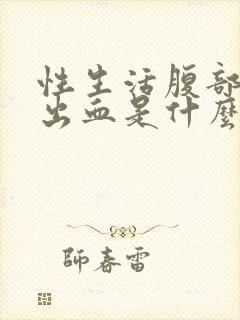 性生活腹部
出血是什麼
師春雷